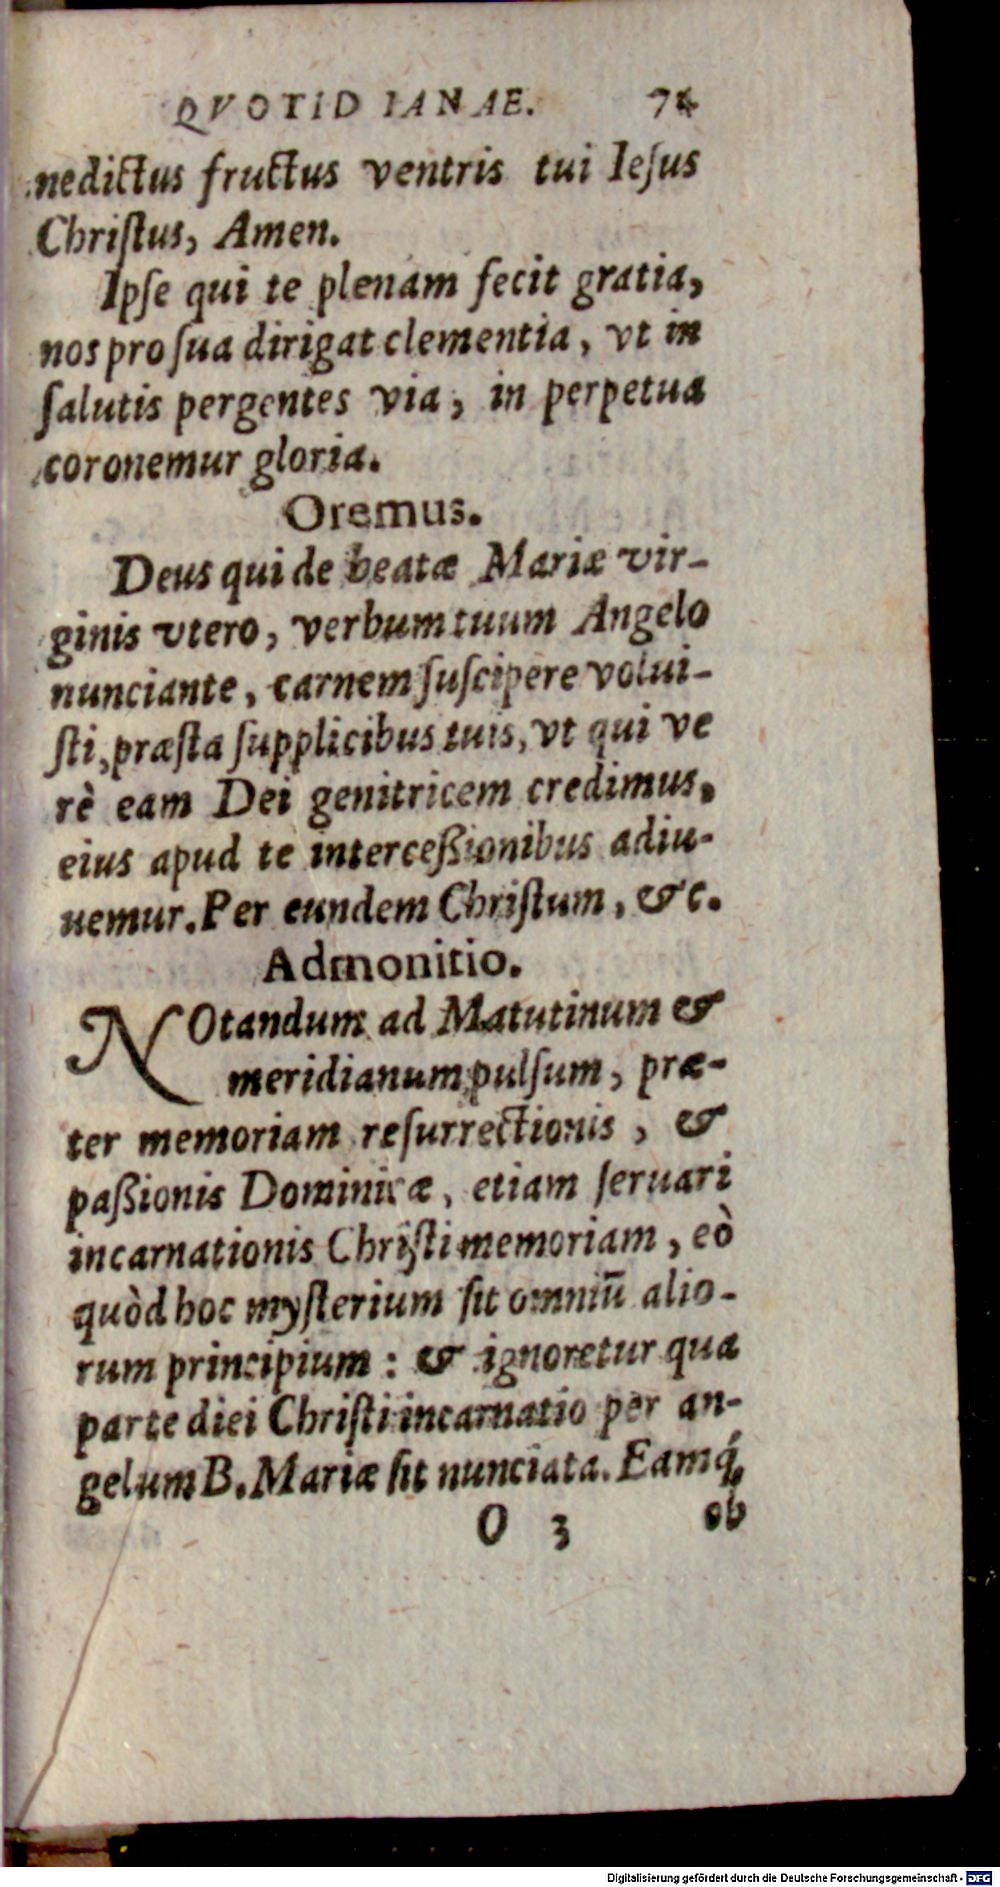 QVOTIDIANAE. 74
nedictus fructus ventris tui Ieſus
Chriſtus, Amen.
Ipſe qui te plenam fecit gratia,
nos pro ſua dirigat clementia, vt in
ſalutis pergentes via, in perpetua
coronemur gloria.
Oremus.
Deus qui de beatæ Mariæ vir-
ginis vtero, verbum tuum Angelo
nunciante, carnem ſuſcipere volui-
ſti, præſta ſupplicibus tuis, vt qui ve
rè eam Dei genitricem credimus,
eius apud te interceßionibus adiu-
uemur. Per eundem Chriſtum, &c.
Admonitio.
NOtandum ad Matutinum &
meridianum pulſum, præ-
ter memoriam reſurrectionis, &
paßionis Dominicæ, etiam ſeruari
incarnationis Chriſti memoriam, eò
quòd hoc myſterium ſit omniū alio-
rum principium: & ignoretur qua
parte diei Chriſti incarnatio per an-
gelum B. Mariæ ſit nunciata. Eamq́;
O 3 ob
Digitalisierung gefördert durch die Deutsche Forschungsgemeinschaft - DFG